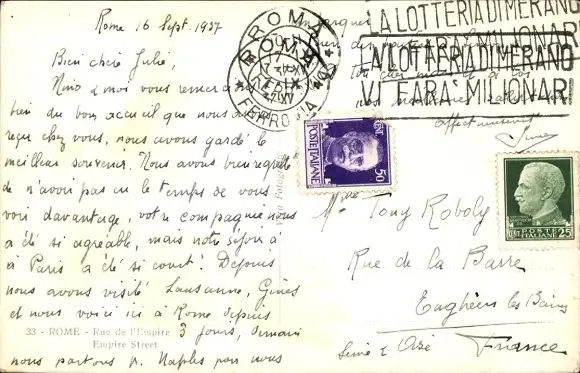 Rome 16 Sept. 1937
Bien chère Julie,
Nino & moi vous remercions
bien du bon accueil que nous avons
reçu chez vous, nous avons gardé le
meilleur souvenir. Nous avons bien regretté
de n'avoir pas eu le temps de vous
voir davantage, votre compagnie nous
a été si agréable, mais notre séjour à
à Paris a été si court! Depuis
nous avons visité Lausanne, Gênes
et nous voici ici à Rome depuis
3 jours, demain
nous partons p. Naples pour nous
33 - ROME - Rue de l'Empire
Empire Street
embarquer
Affectueusement
ROMA
FERROVIA
LA LOTTERIA DI MERANO
VI FARA' MILIONARI
LA LOTTERIA DI MERANO
VI FARA' MILIONARI
POSTE ITALIANE
CENT 50
POSTE ITALIANE
CENT. 25
Vera Foto
Mme Tony Roboly
Rue de la Barre
Enghien les Bains
Seine & Oise France